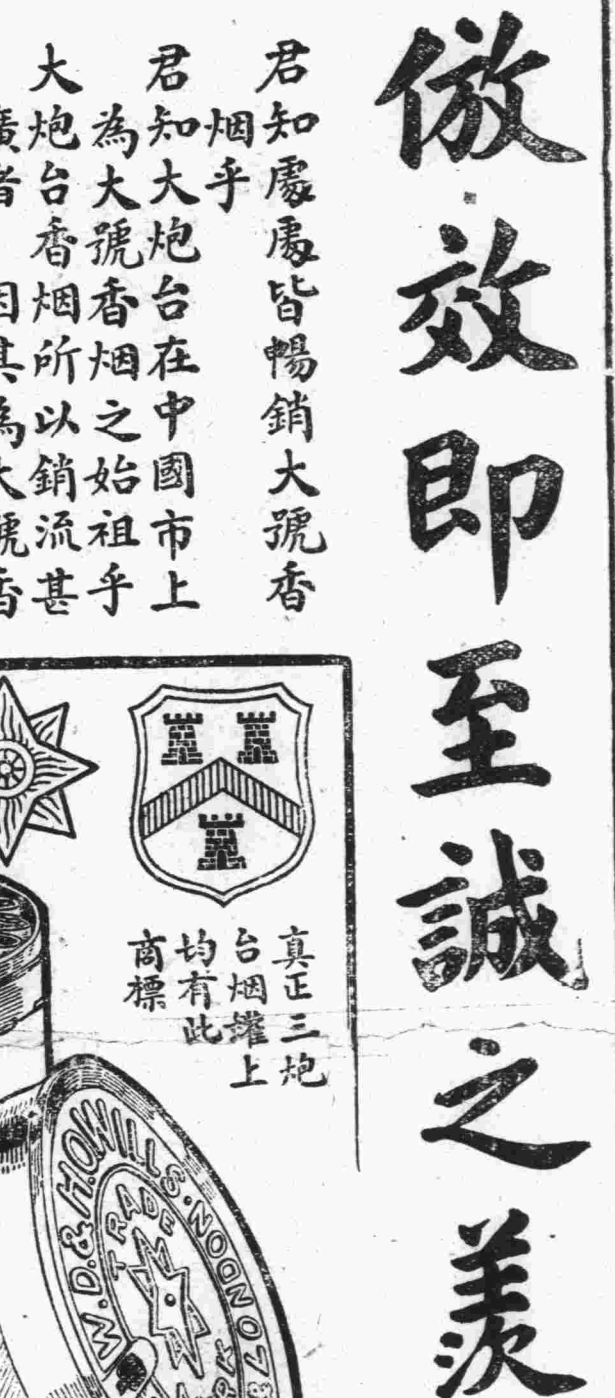 倣效即至誠之羨
君知處處皆暢銷大號香
烟乎
君知大炮台在中國市上
為大號香烟之始祖乎
大炮台香烟所以銷流甚
廣者 因其為大號香
真正三炮
台烟罐上
均有此
商標
W.D.&H.O.WILLS.
TRADE